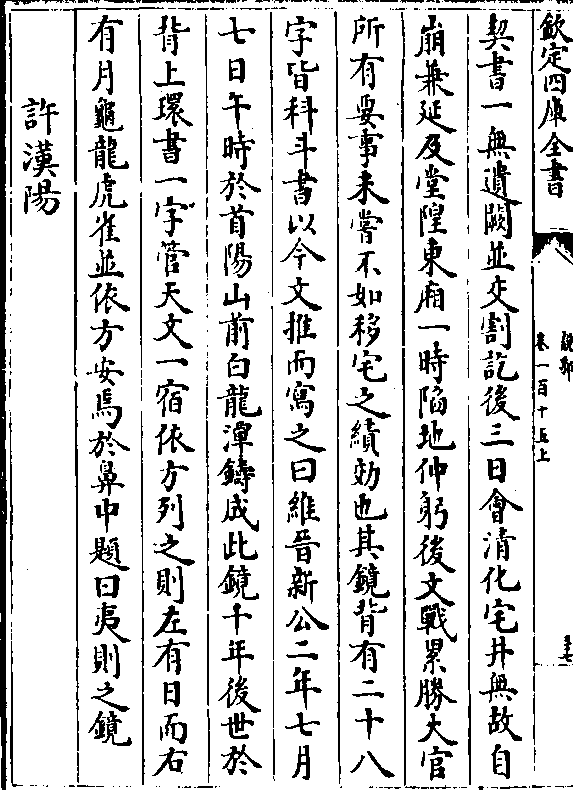 欽定四庫全書
說郛
卷一百十五上
契書一無遺闕並交割訖後三日會清化宅井無故自
崩兼延及堂隍東廂一時陷地仲躬後文戰累勝大官
所有要事未嘗不如移宅之績効也其鏡背有二十八
字皆科斗書以今文推而寫之曰維晉新公二年七月
七日午時於首陽山前白龍潭鑄成此鏡千年後世於
背上環書一字管天文一宿依方列之則左有日而右
有月龜龍虎雀並依方安焉於鼻中題曰夷則之鏡
許漢陽